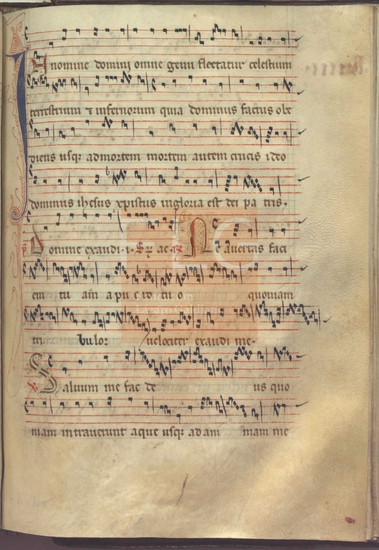 In nomine domini omne genu flectatur celestium
terrestrium & infernorum quia dominus factus obe
diens usq; ad mortem mortem autem crucis ideo
dominus ihesus xpistus in gloria est dei pa tris.
Domine exaudi. Ne avertas faci
em tu am a pu e ro tu o quoniam
tri bulor velociter exaudi me.
Salvum me fac de us quo
niam intraverunt aque usq; ad am mam me